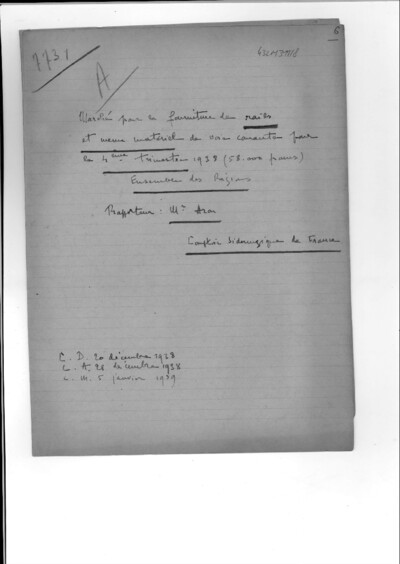 6
7731
A
Marché pour la fourniture de rails
et menu matériel de voie courante pour
le 4ème trimestre 1938 (58.000 francs)
Ensemble des Régions
Rapporteur : Mr Aron
Comptoir Sidérurgique de France
C. D. 20 décembre 1938
C. A. 21 décembre 1938
C. M. 5 janvier 1939